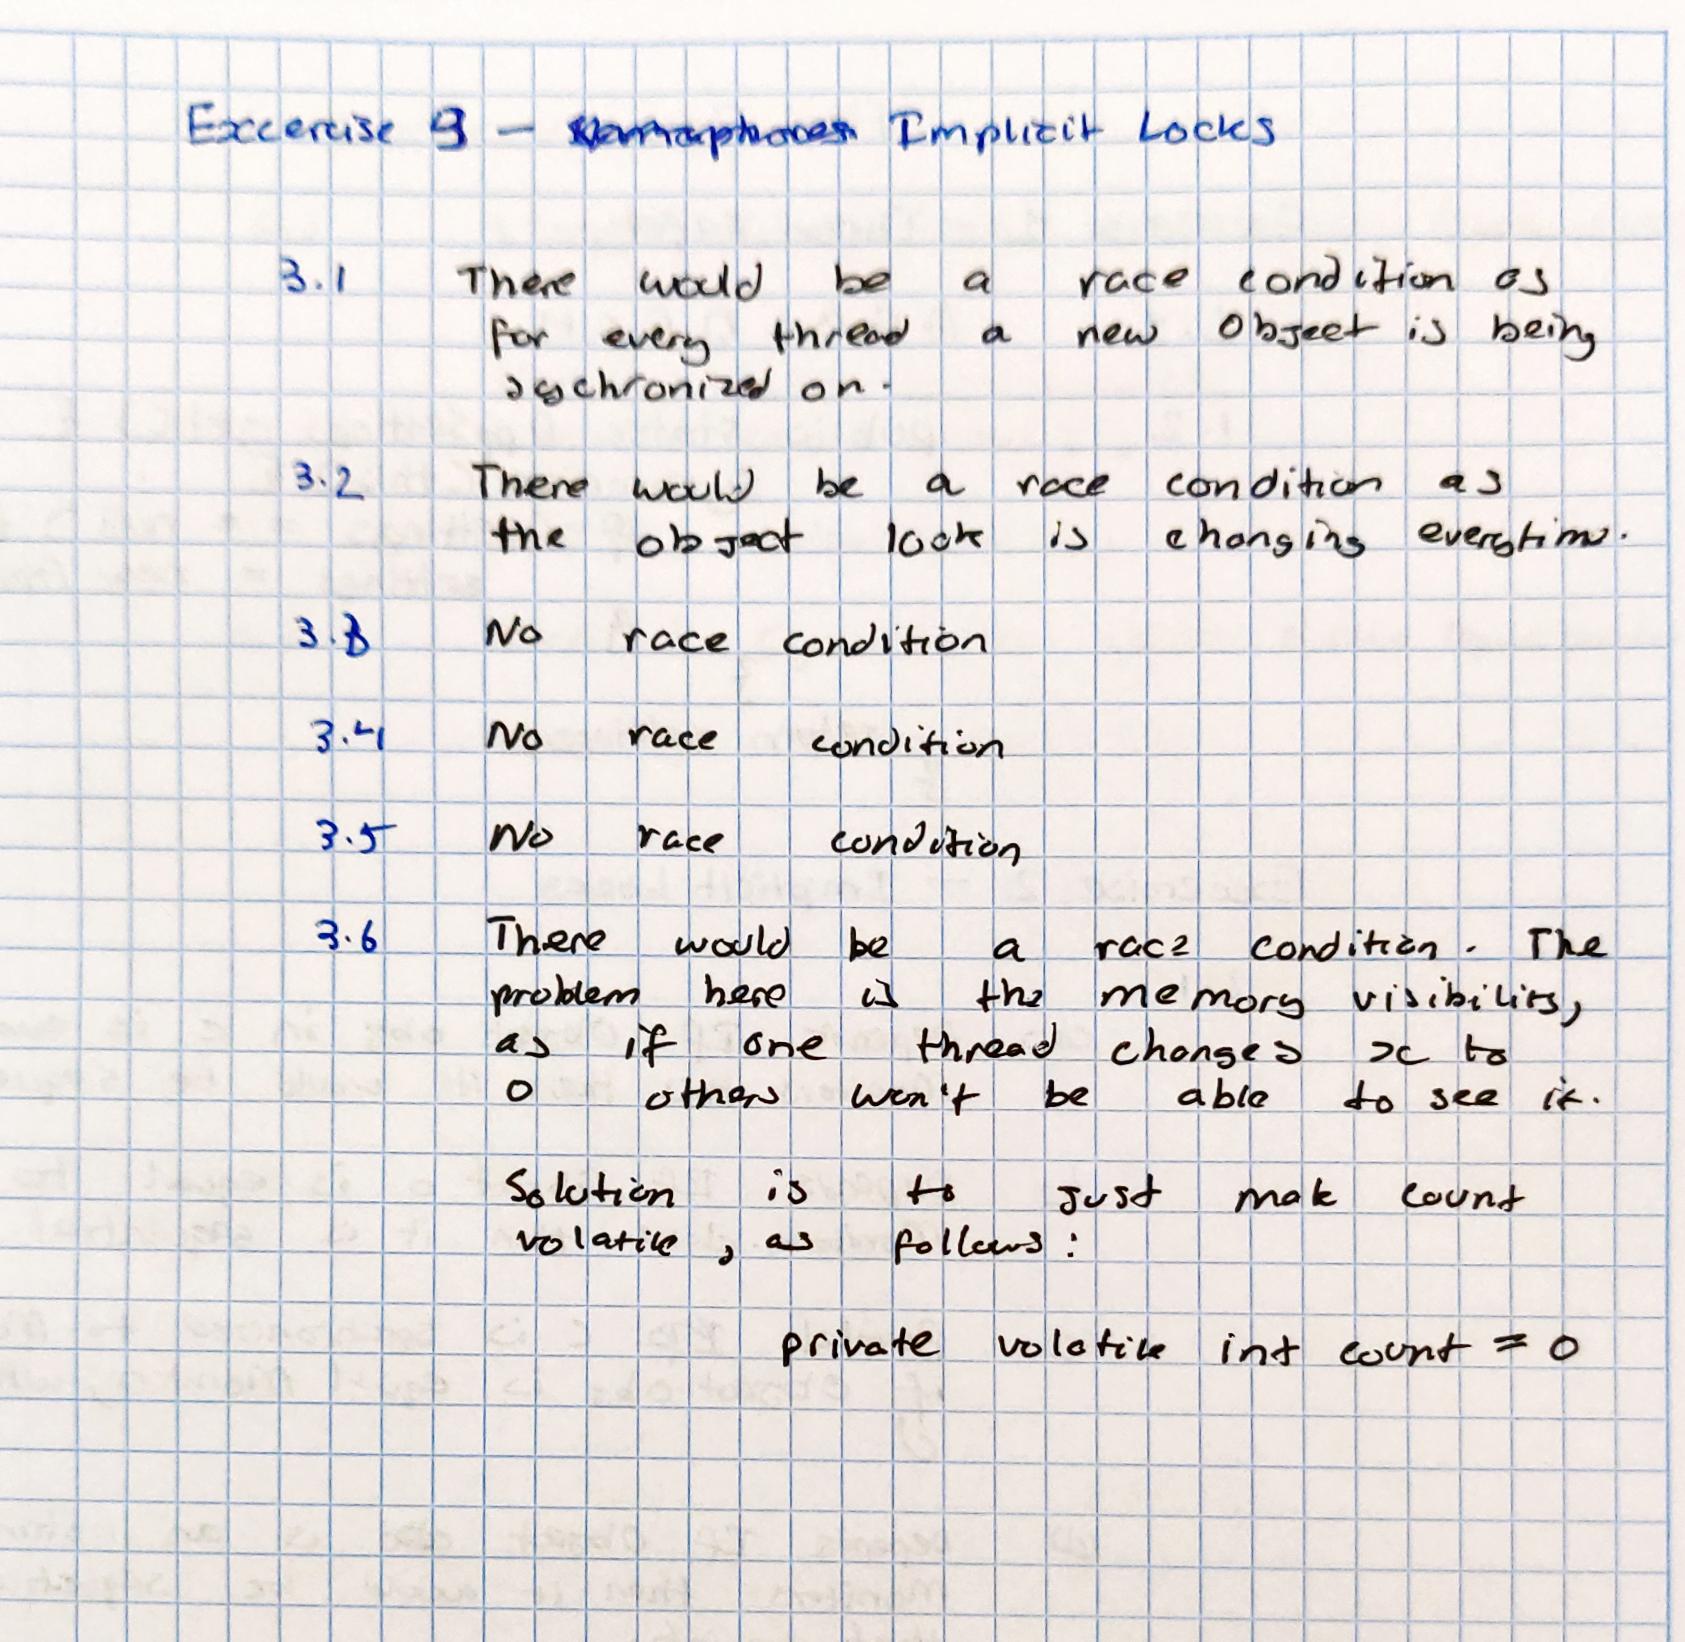 Excercise 3 - Implicit Locks
3.1 There would be a race condition as
for every thread a new Object is being
sychronized on.
3.2 There would be a race condition as
the object lock is changing everytime.
3.3 No race condition
3.4 No race condition
3.5 No race condition
3.6 There would be a race condition. The
problem here is the memory visibility,
as if one thread changes x to
0 others won't be able to see it.
Solution is to just mak count
volatile, as follows:
private volatile int count = 0